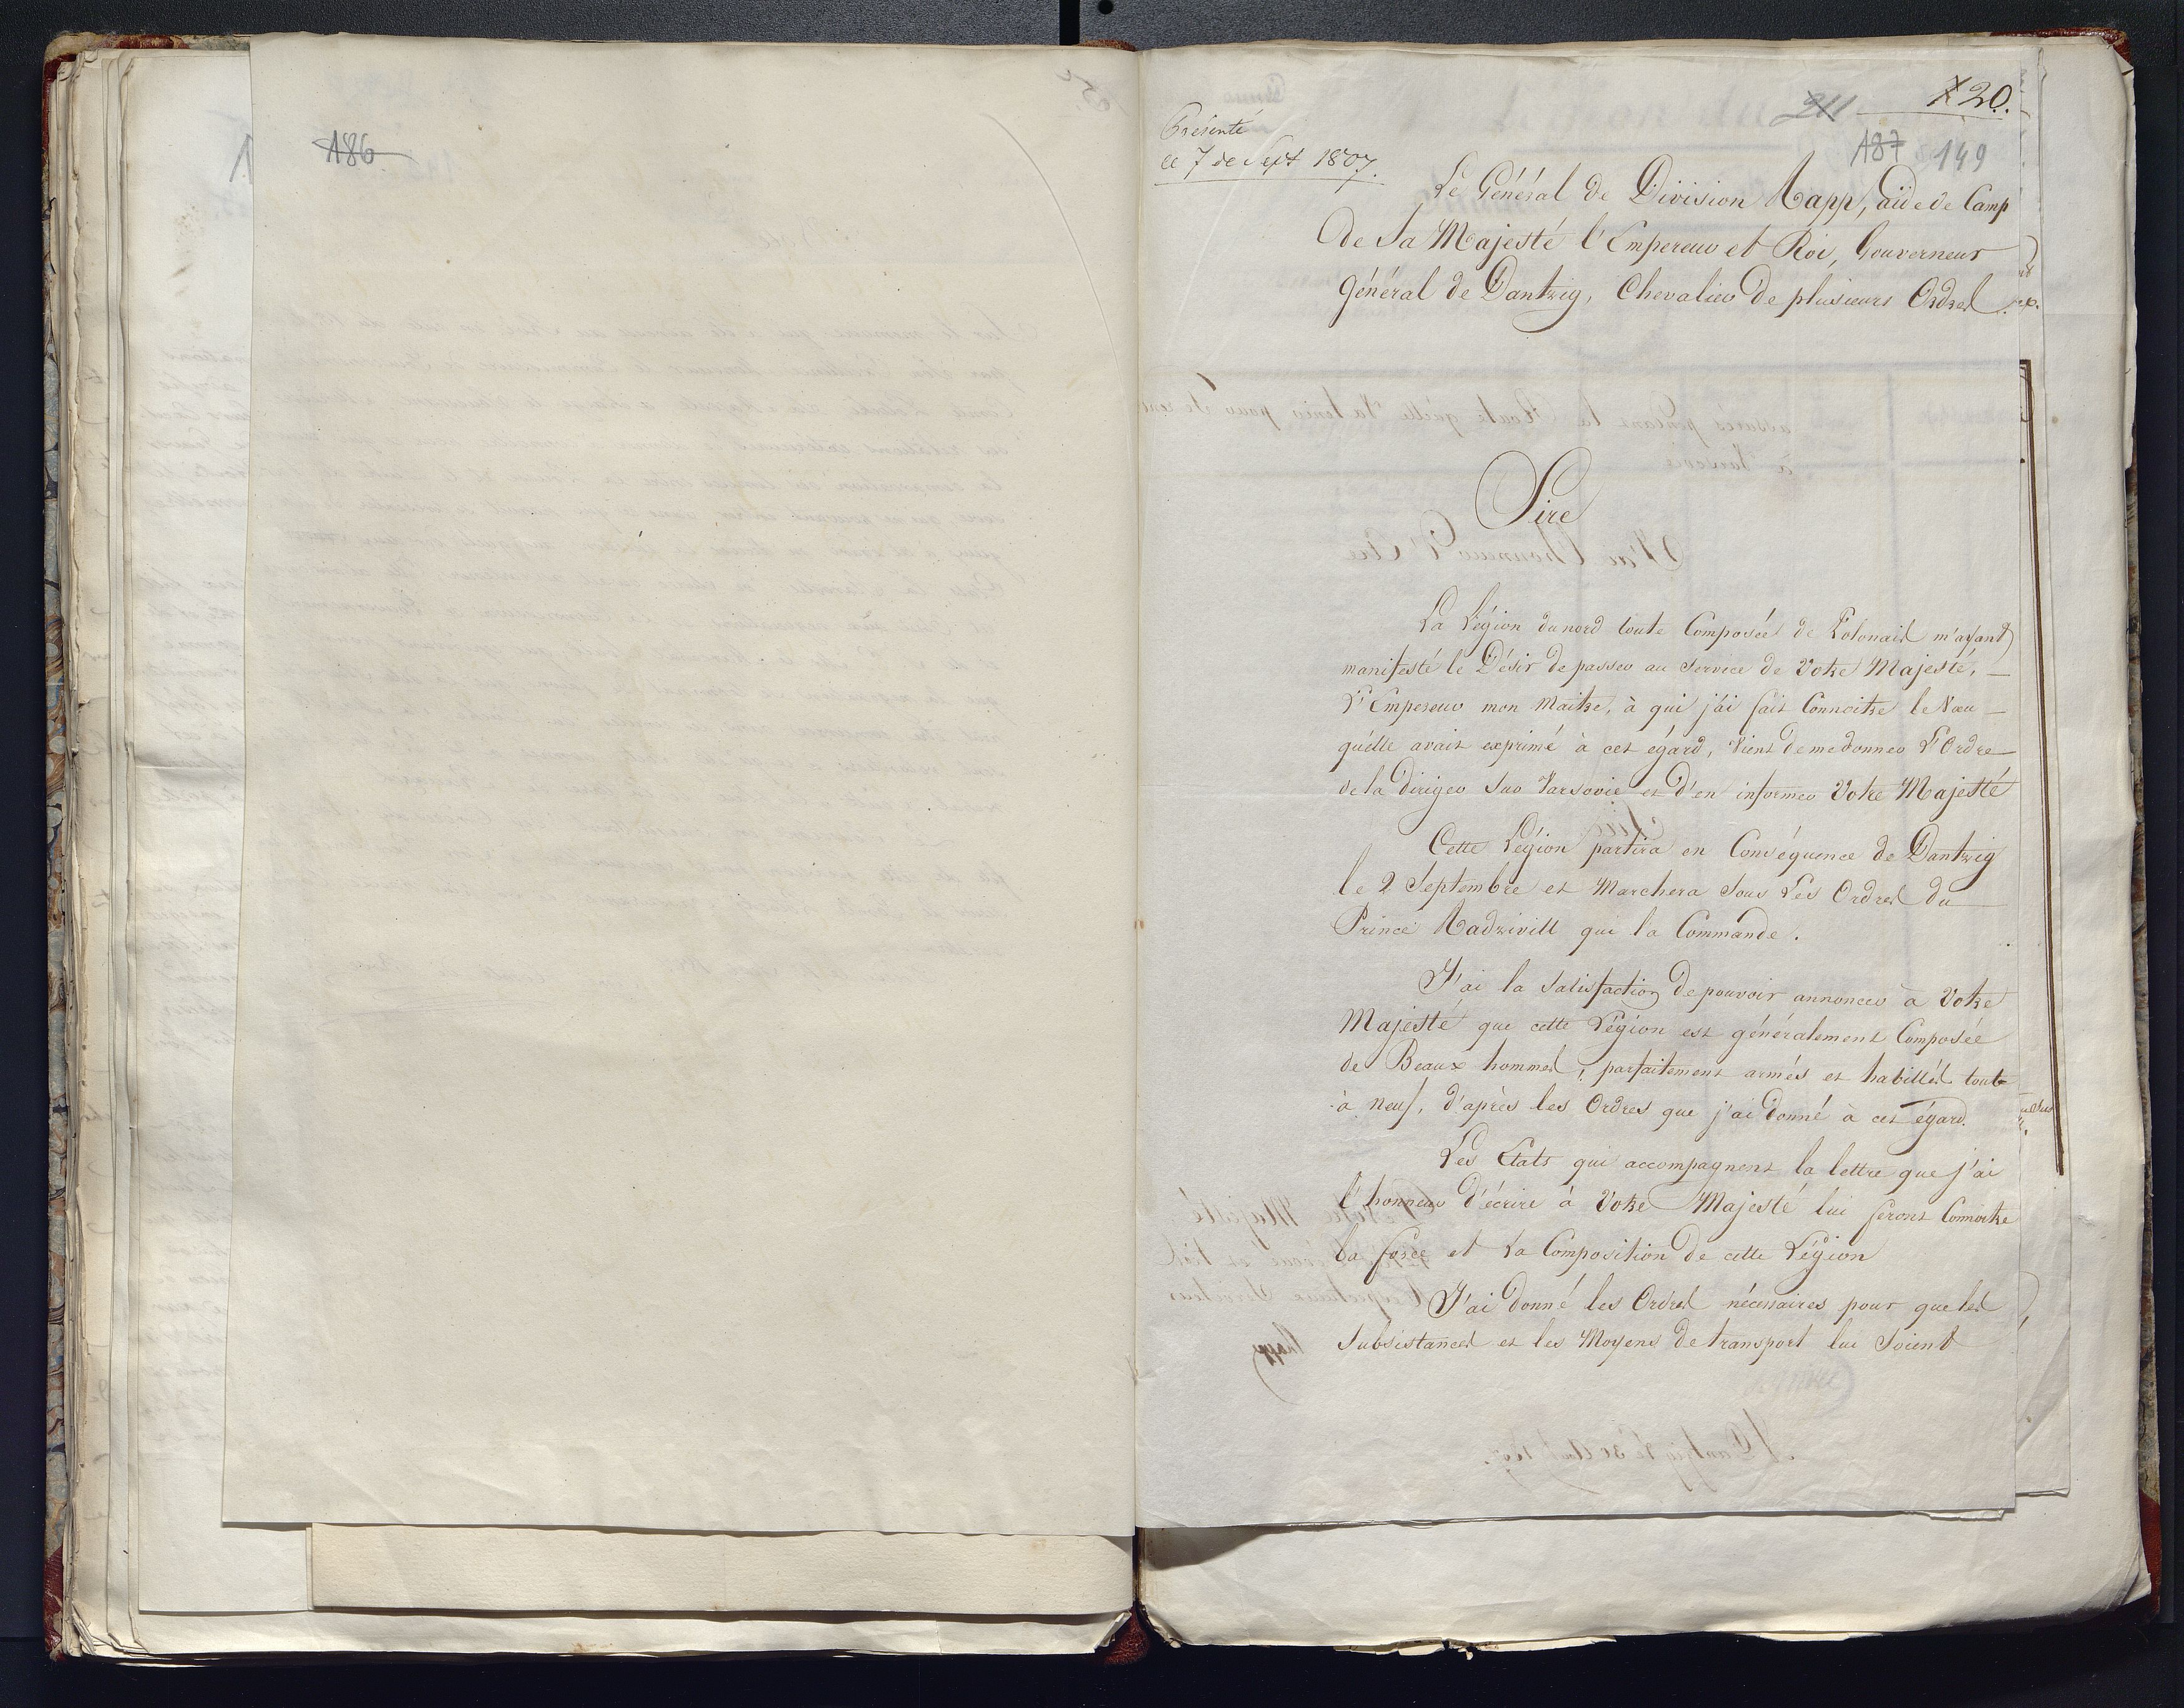 186
Présenté
le 7 de Sept 1807.
211
20.
187 149
Le Général de Division Rapp, aïde de Camp
de Sa Majesté l'Empereur et Roi, Gouverneur
général de Dantzig, Chevalier de plusieurs Ordres
Sire
La Légion du nord toute Composée de Polonais m'ayant
manifesté le Désir de passer au Service de Votre Majesté,
L'Empereur mon Maitre, à qui j'ai fait Connoitre le Vœu
qu'elle avait exprimé à cet égard, Vient de me donner L'Ordre
de la Diriger Sur Varsovie et d'en informer Votre Majesté
Cette Légion partira en Conséquence de Dantzig
le 2 Septembre et Marchera Sous Les Ordres du
Prince Radzivill qui la Commande.
J'ai la Satisfaction de pouvoir annoncer à Votre
Majesté que cette Légion est généralement Composée
de Beaux hommes, parfaitement armés et habillés tout
à neuf, d'après les Ordres que j'ai donné à cet égard.
Les Etats qui accompagnent la lettre que j'ai
l'honneur d'écrire à Votre Majesté lui feront Connoitre
la force et La Composition de cette Légion
J'ai donné les Ordres nécessaires pour que les
Subsistances et les Moyens de transport lui Soient